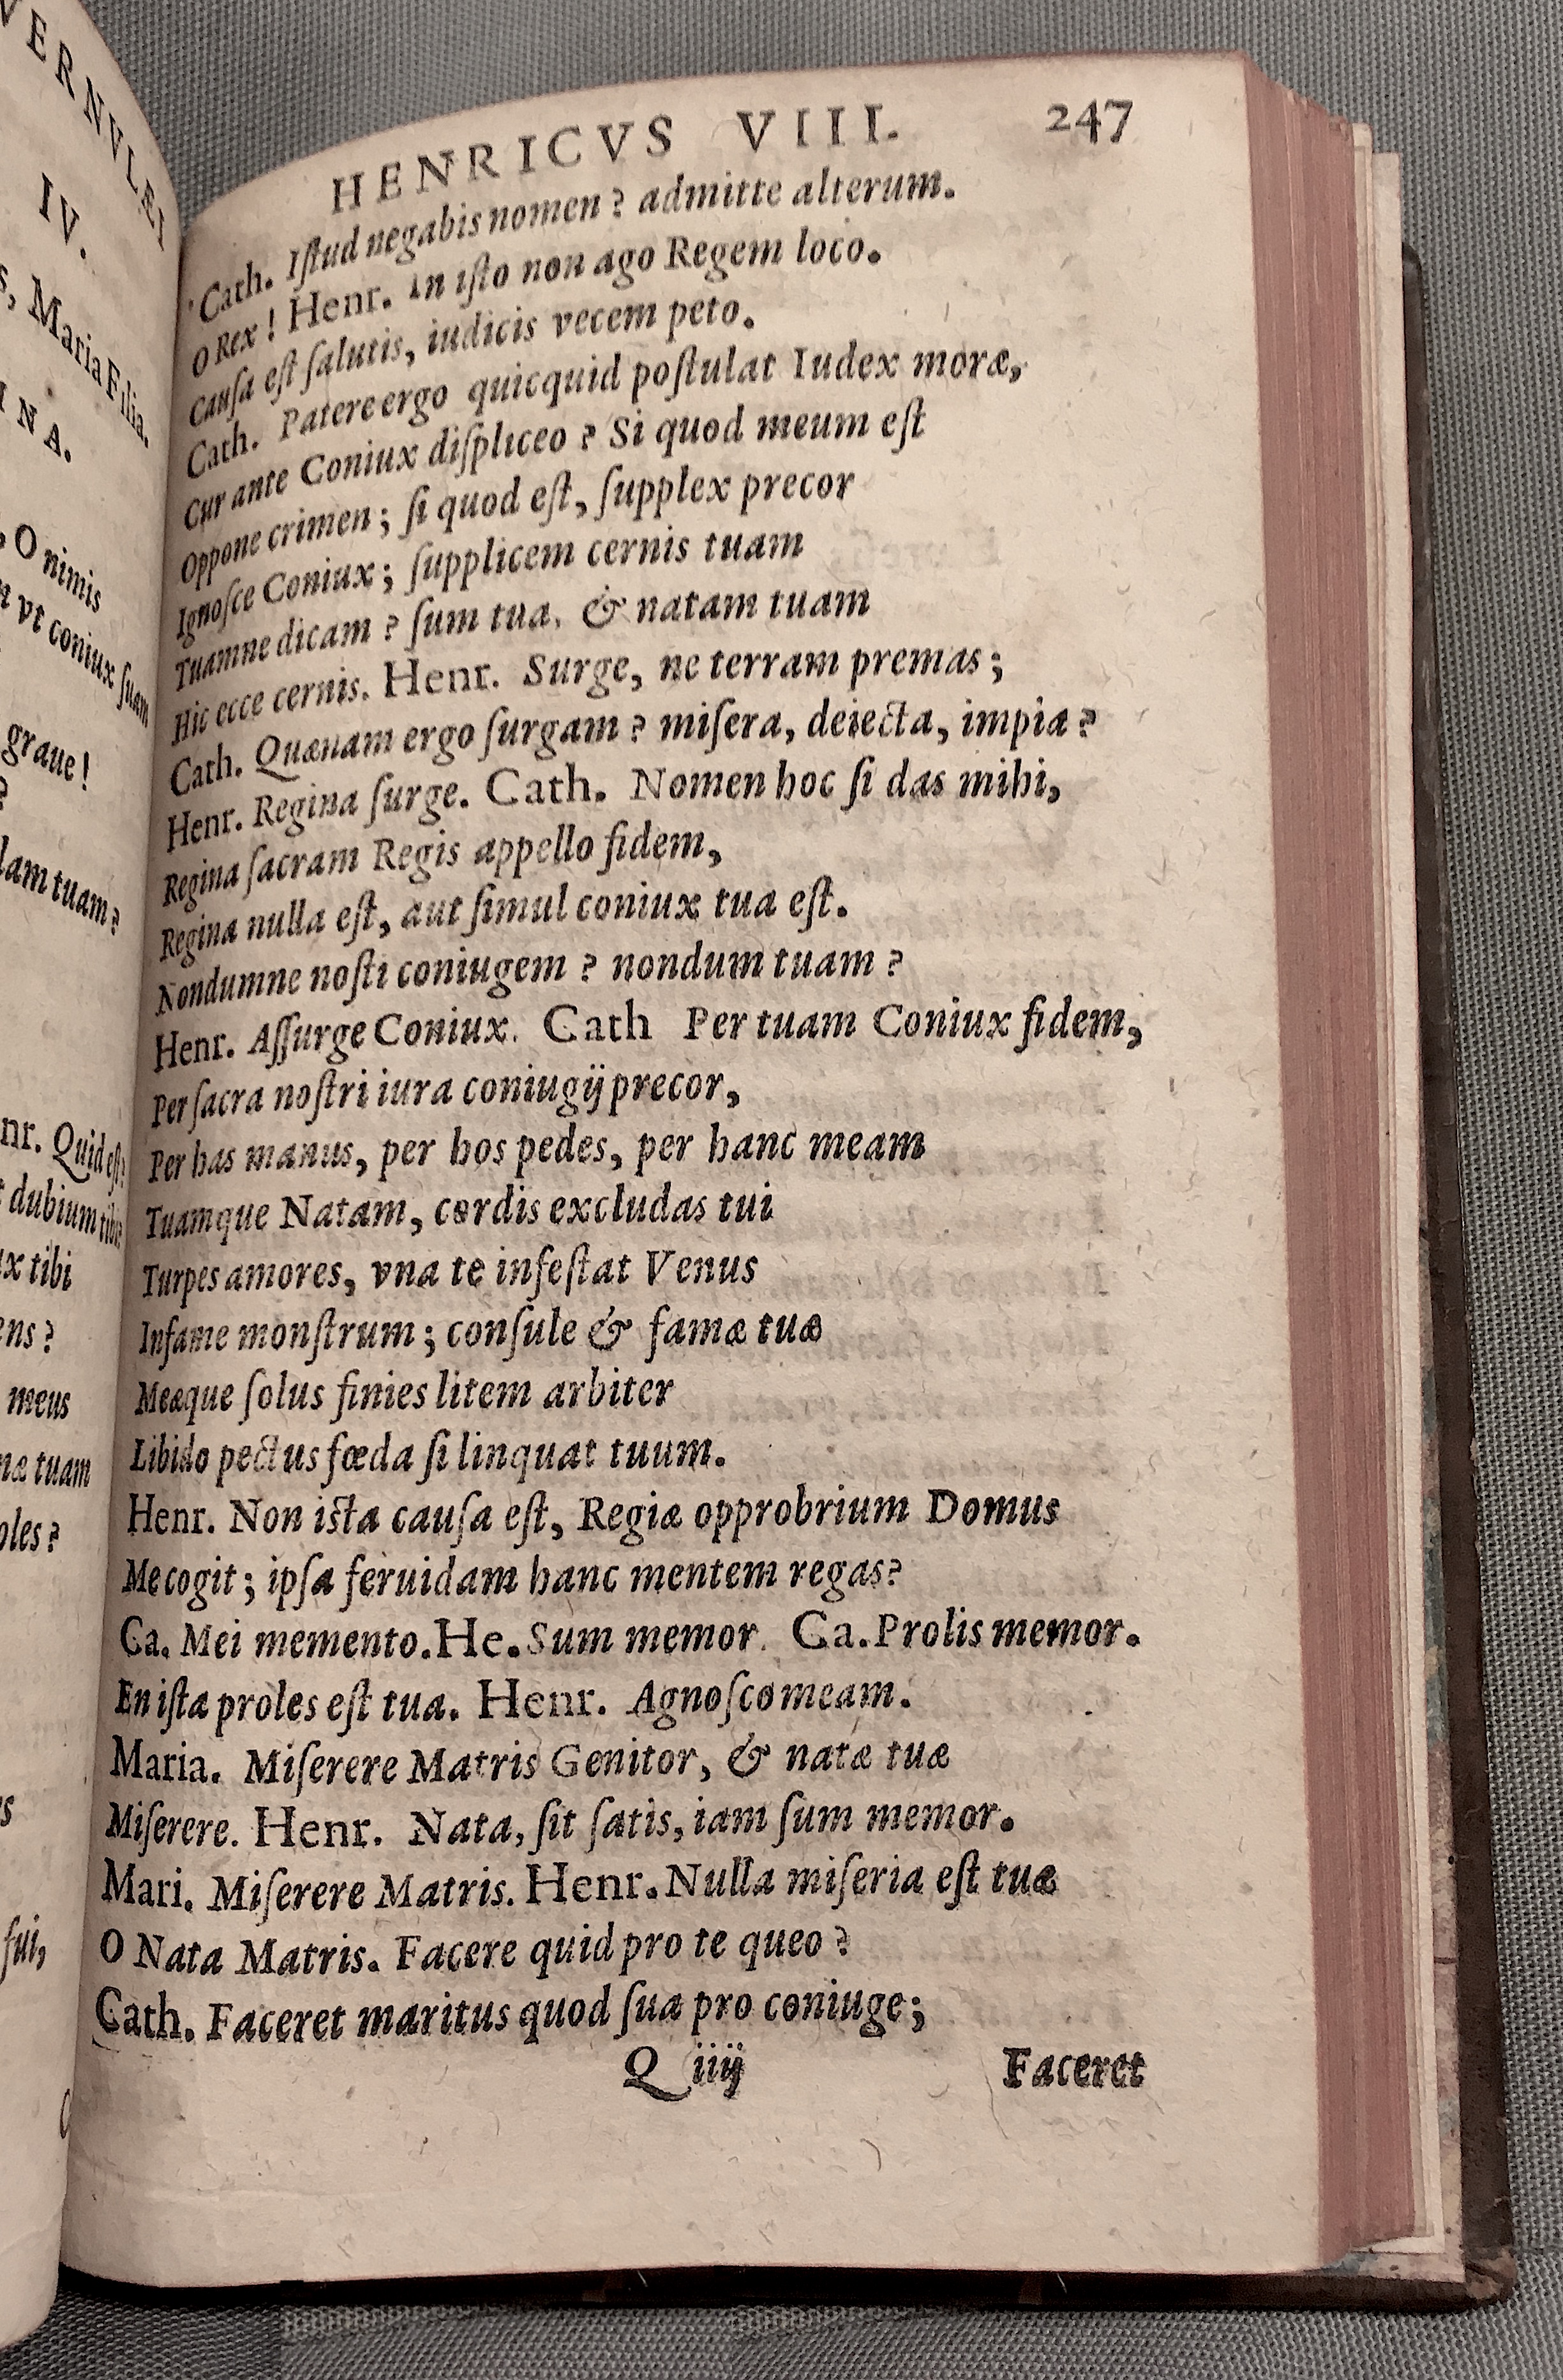 VERNVLÆI
IV.
Maria Filia.
INA.
O nimis
vt coniux ſuam
graue!
?
lam tuam?
nr. Quid eſt?
dubium tibi
ux tibi
ens?
meus
næ tuam
oles?
s
ſui,
HENRICVS VIII. 247
Cath. Iſtud negabis nomen? admitte alterum.
O Rex! Henr. In iſto non ago Regem loco.
Cauſa eſt ſalutis, iudicis vecem peto.
Cath. Patere ergo quicquid poſtulat Iudex moræ,
Cur ante Coniux diſpliceo? Si quod meum eſt
Oppone crimen; ſi quod eſt, ſupplex precor
Ignoſce Coniux; ſupplicem cernis tuam
Tuamne dicam? ſum tua. & natam tuam
Hic ecce cernis. Henr. Surge, ne terram premas;
Cath. Quænam ergo ſurgam? miſera, deiecta, impia?
Henr. Regina ſurge. Cath. Nomen hoc ſi das mihi,
Regina ſacram Regis appello fidem,
Regina nulla eſt, aut ſimul coniux tua eſt.
Nondumne noſti coniugem? nondum tuam?
Henr. Aſſurge Coniux. Cath Per tuam Coniux fidem,
Per ſacra noſtri iura coniugij precor,
Per has manus, per hos pedes, per hanc meam
Tuamque Natam, cordis excludas tui
Turpes amores, vna te infeſtat Venus
Infame monſtrum; conſule & famæ tuæ
Meæque ſolus finies litem arbiter
Libido pectus fœda ſi linquat tuum.
Henr. Non iſta cauſa eſt, Regiæ opprobrium Domus
Me cogit; ipſa feruidam hanc mentem regas?
Ca. Mei memento. He. Sum memor. Ca. Prolis memor.
En iſta proles eſt tua. Henr. Agnoſco meam.
Maria. Miſerere Matris Genitor, & natæ tuæ
Miſerere. Henr. Nata, ſit ſatis, iam ſum memor.
Mari. Miſerere Matris. Henr. Nulla miſeria eſt tuæ
O Nata Matris. Facere quid pro te queo?
Cath. Faceret maritus quod ſua pro coniuge;
Q iiij Faceret